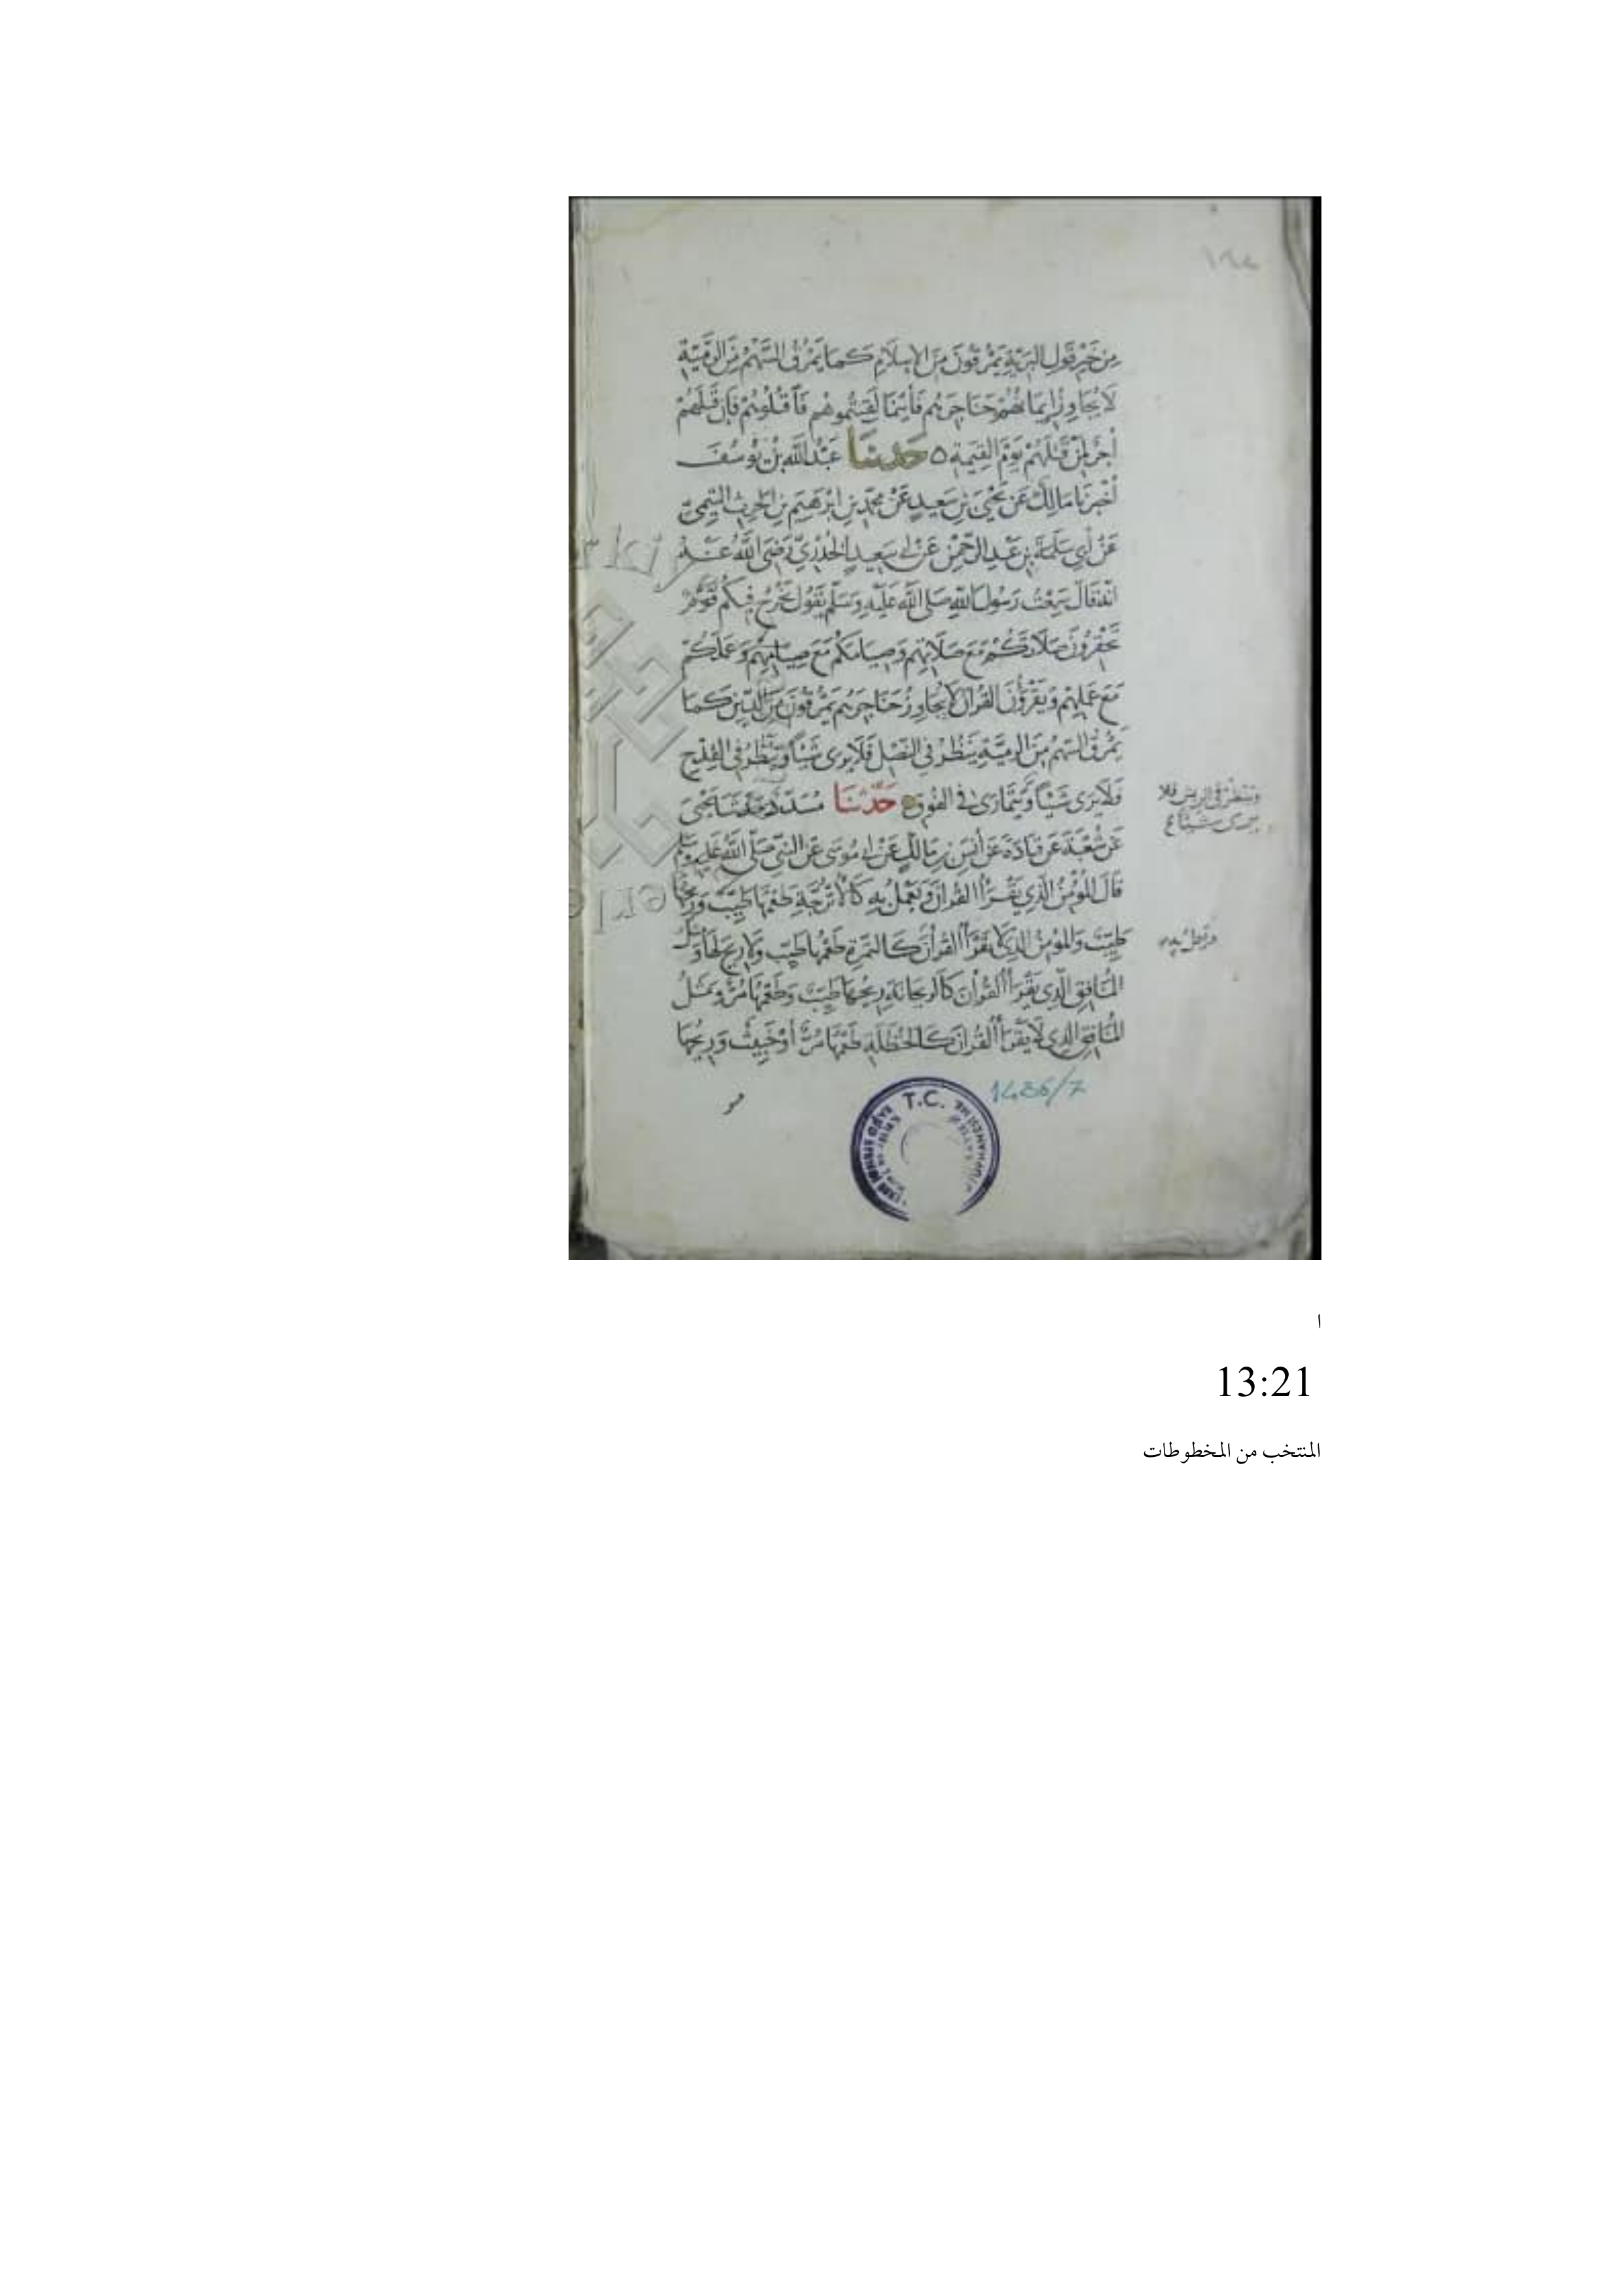 ١٩٤
مِنْ خَيْرِ قَوْلِ البَرِيَّةِ يَمْرُقُونَ مِنَ الإِسْلَامِ كَمَا يَمْرُقُ السَّهْمُ مِنَ الرَّمِيَّةِ
لَا يُجَاوِزُ إِيمَانُهُمْ حَنَاجِرَهُمْ فَأَيْنَمَا لَقِيتُمُوهُمْ فَاقْتُلُوهُمْ فَإِنَّ قَتْلَهُمْ
أَجْرٌ لِمَنْ قَتَلَهُمْ يَوْمَ القِيمَةِ ٥ حَدَّثَنَا عَبْدُ اللَّهِ بْنُ يُوسُفَ
أَخْبَرَنَا مَالِكٌ عَنْ يَحْيَى بْنِ سَعِيدٍ عَنْ مُحَمَّدِ بْنِ ابْرَهِيمَ بْنِ الْحَرِثِ التَّيْمِيِّ
عَنْ أَبِي سَلَمَةَ بْنِ عَبْدِ الرَّحْمَنِ عَنْ أَبِي سَعِيدٍ الْخُدْرِيِّ رَضِيَ اللَّهُ عَنْهُ
أَنَّهُ قَالَ سَمِعْتُ رَسُولَ اللَّهِ صَلَّى اللَّهُ عَلَيْهِ وَسَلَّمَ يَقُولُ يَخْرُجُ فِيكُمْ قَوْمٌ
تَحْقِرُونَ صَلَاتَكُمْ مَعَ صَلَاتِهِمْ وَصِيَامَكُمْ مَعَ صِيَامِهِمْ وَعَمَلَكُمْ
مَعَ عَمَلِهِمْ وَيَقْرَؤُنَ القُرْآنَ لَا يُجَاوِزُ حَنَاجِرَهُمْ يَمْرُقُونَ مِنَ الدِّينِ كَمَا
يَمْرُقُ السَّهْمُ مِنَ الرَّمِيَّةِ يَنْظُرُ فِي النَّصْلِ فَلَا يَرَى شَيْئًا وَيَنْظُرُ فِي القِدْحِ
فَلَا يَرَى شَيْئًا وَيَتَمَارَى فِي الفُوقِ حَدَّثَنَا مُسَدَّدٌ حَدَّثَنَا يَحْيَى
وينظر في الريش فلا
يرى شيئا
عَنْ شُعْبَةَ عَنْ قَتَادَةَ عَنْ أَنَسِ بْنِ مَالِكٍ عَنْ أَبِي مُوسَى عَنِ النَّبِيِّ صَلَّى اللَّهُ عَلَيْهِ وَسَلَّمَ
قَالَ المُؤْمِنُ الَّذِي يَقْرَأُ القُرْآنَ وَيَعْمَلُ بِهِ كَالْأُتْرُجَّةِ طَعْمُهَا طَيِّبٌ وَرِيحُهَا
طَيِّبٌ وَالمُؤْمِنُ الَّذِي لَا يَقْرَأُ القُرْآنَ كَالتَّمْرَةِ طَعْمُهَا طَيِّبٌ وَلَا رِيحَ لَهَا وَمَثَلُ
ويعمل به
المُنَافِقِ الَّذِي يَقْرَأُ القُرْآنَ كَالرَّيْحَانَةِ رِيحُهَا طَيِّبٌ وَطَعْمُهَا مُرٌّ وَمَثَلُ
المُنَافِقِ الَّذِي لَا يَقْرَأُ القُرْآنَ كَالْحَنْظَلَةِ طَعْمُهَا مُرٌّ أَوْ خَبِيثٌ وَرِيحُهَا
مر
1486/7
T.C.
ا
13:21
المنتخب من المخطوطات